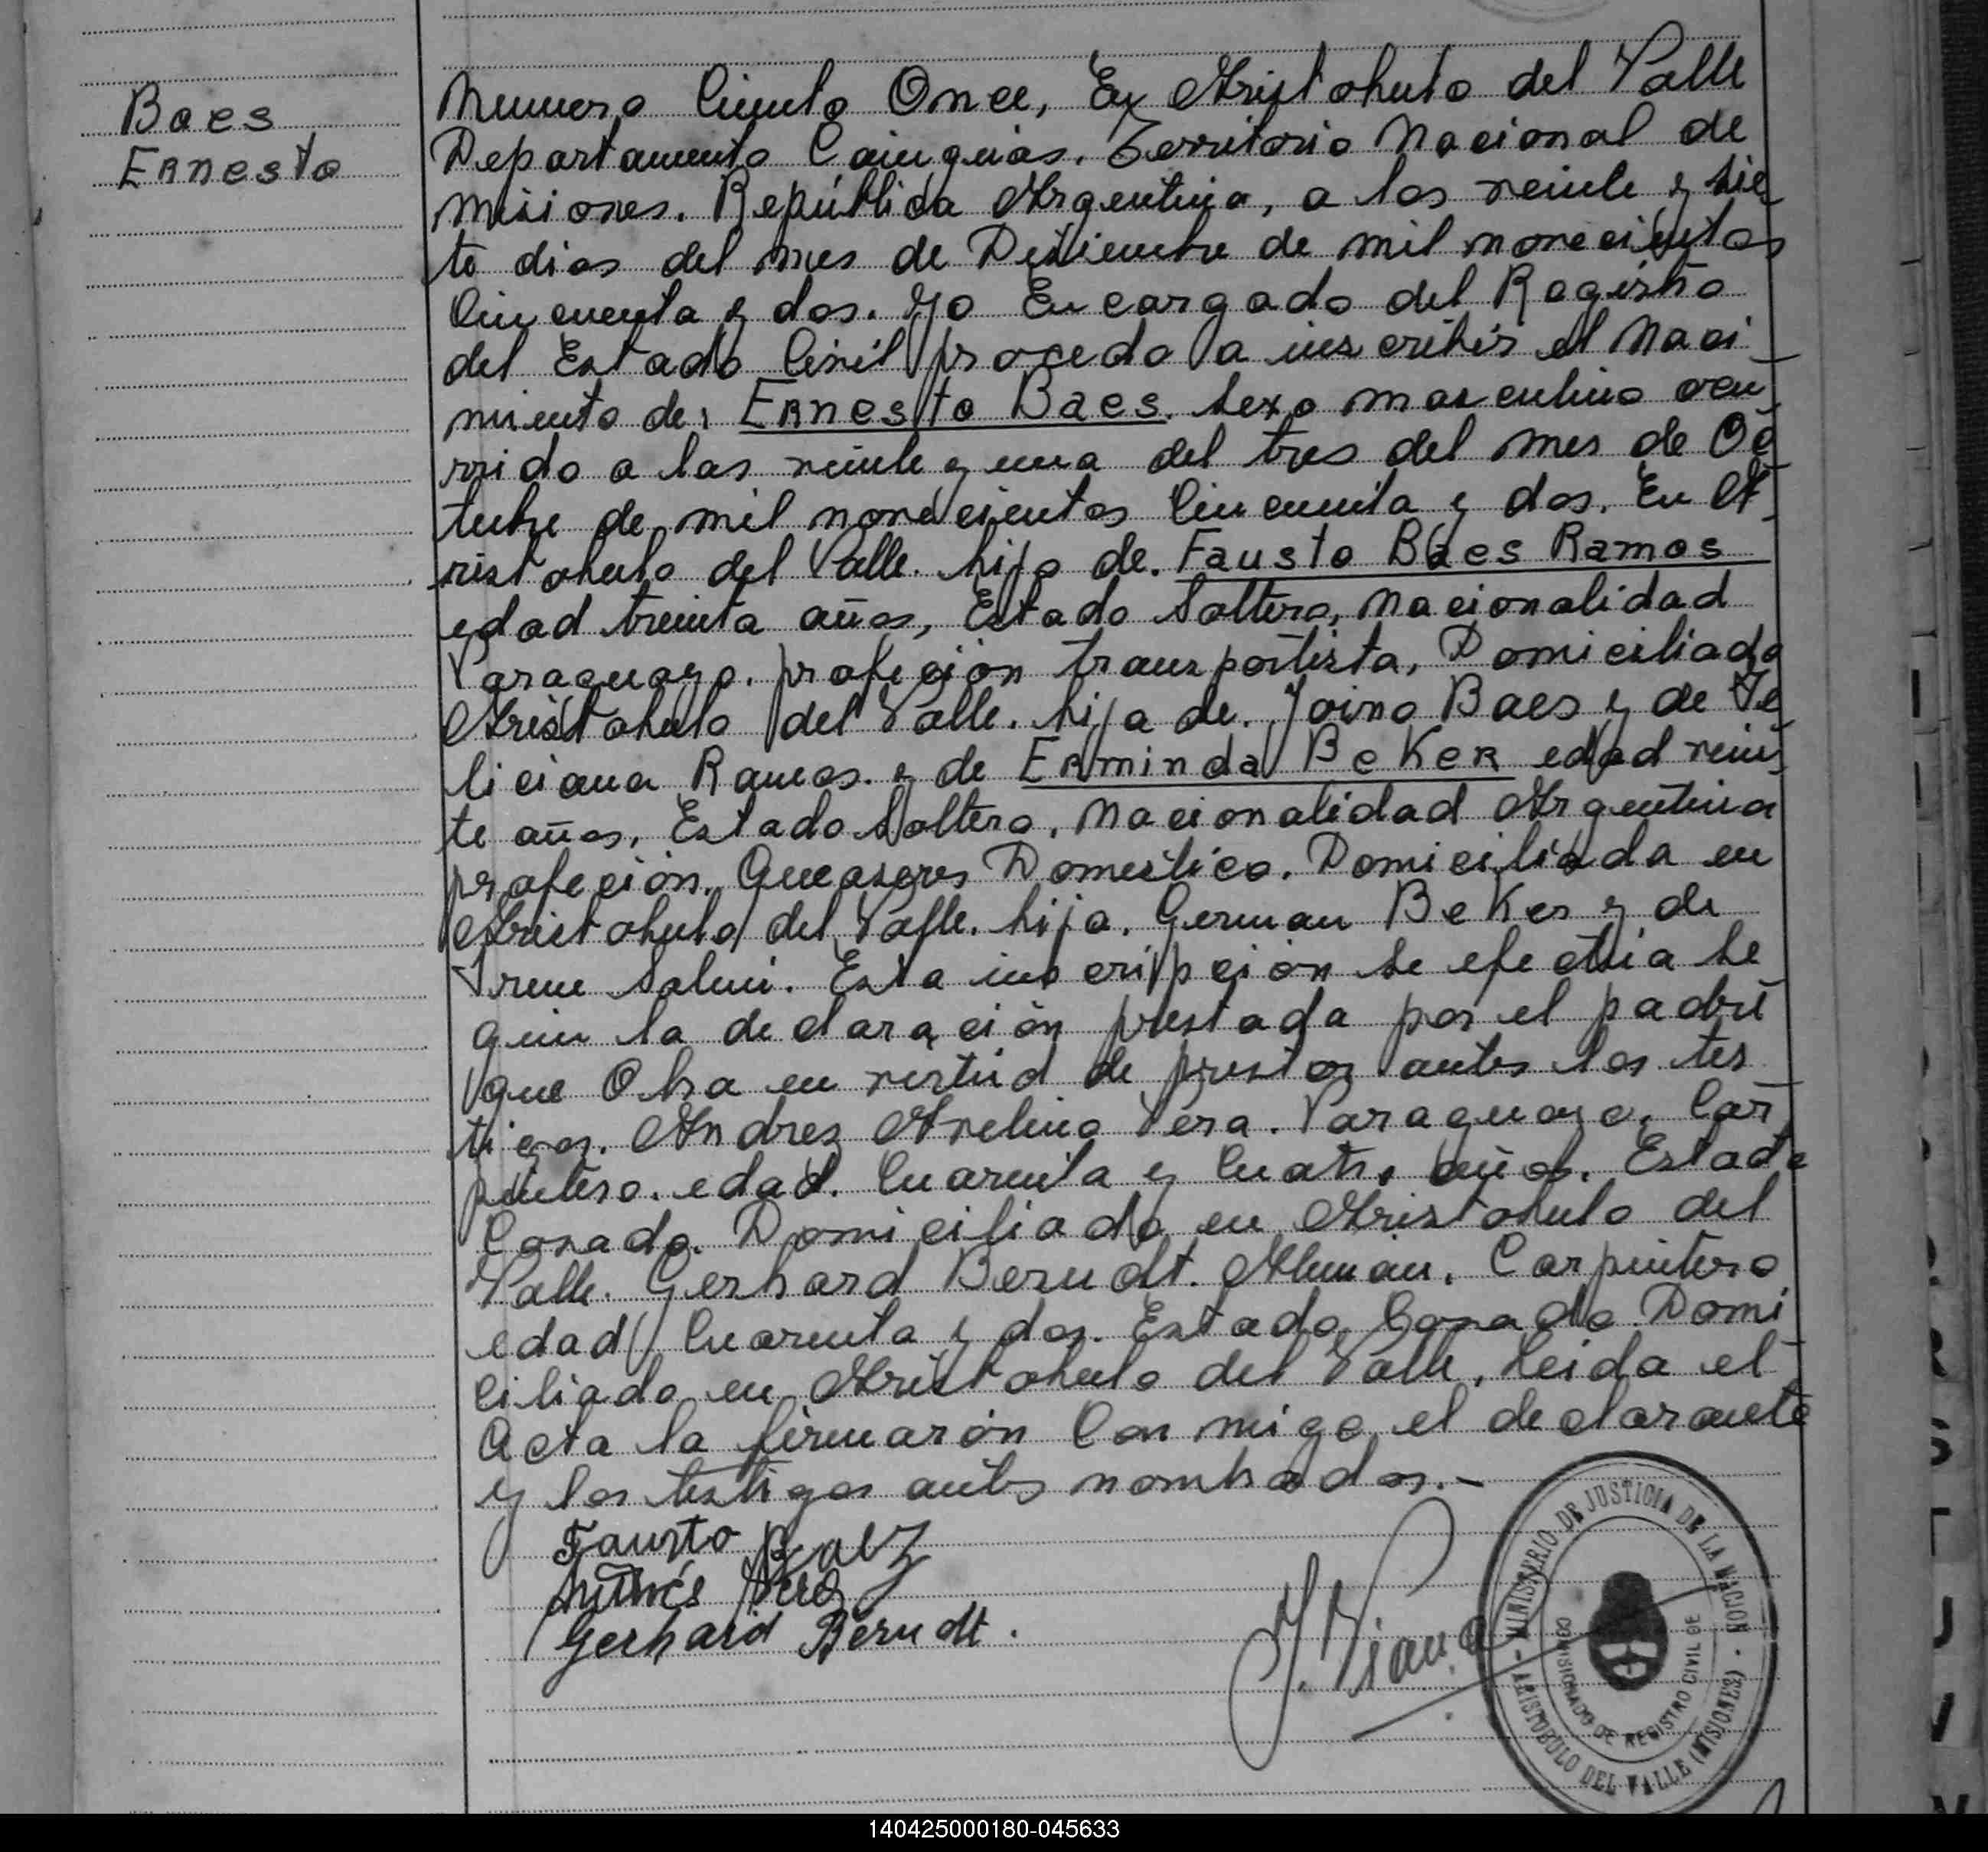 Baes
Ernesto
Numero Ciento Once, En Aristobulo del Valle
Departamento Cainguas. Territorio Nacional de
Misiones. República Argentina, a los veinte y sie
te dias del mes de Disiembre de mil novecientos
Cincuenta y dos. Yo Encargado del Registro
del Estado Civil procedo a inscribir el Naci
miento de, Ernesto Baes. Sexo masculino ocu
rrido a las veinte y una del tres del mes de Oc
tubre de mil novecientos Cincuenta y dos. En A
ristobulo del Valle. hijo de. Fausto Baes Ramos
edad treinta años, Estado Soltero, Nacionalidad
Paraguayo. profeción transportista, Domiciliado
Aristobulo del Valle. hijo de. Jovino Baes y de Fe
liciana Ramos. y de Erminda Beker edad vein
te años, Estado Soltera, Nacionalidad Argentina
profeción. Queaseres Domestico. Domiciliada en
Aristobulo del Valle. hija. German Beker y de
Irene Salmi. Esta inscripción se efectúa se
gun la declaración prestada por el padre
que Obra en vertud de prestar antes los tes
tigos. Andres Avelino Vera. Paraguayo. Car
pintero. edad. Cuarenta y Cuatro años. Estado
Casado. Domiciliado en Aristobulo del
Valle. Gerhard Berndt. Aleman. Carpintero
edad Cuarenta y dos. Estado Casado. Domi
ciliado en Aristobulo del Valle, Leida el
Acta la firmarón Con migo el declarante
y los testigos antes nombrados.-
Fausto Baez
Andrés Vera
Gerhard Berndt.
MINISTERIO DE JUSTICIA DE LA NACION
COMISIONADO DE REGISTRO CIVIL DE
ARISTOBULO DEL VALLE (MISIONES)
140425000180-045633